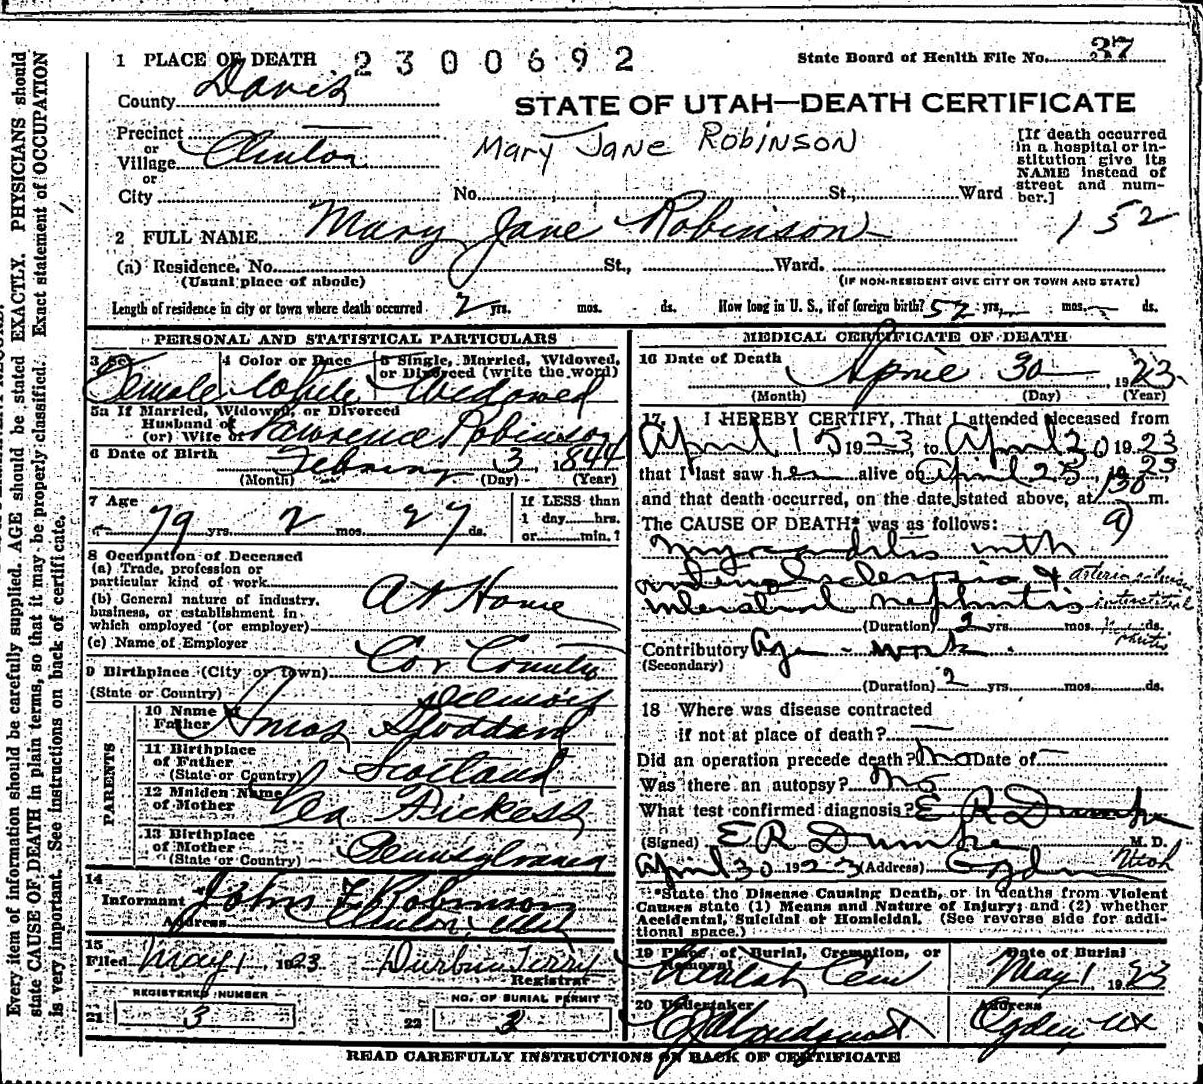 1 PLACE OF DEATH 2300692
State Board of Health File No. 37
County Davis
STATE OF UTAH—DEATH CERTIFICATE
Precinct
or
Village Clinton
or
City
Mary Jane Robinson
No. St., Ward
[If death occurred
in a hospital or in-
stitution give its
NAME instead of
street and num-
ber.]
152
2 FULL NAME Mary Jane Robinson
(a) Residence, No. St., Ward.
(Usual place of abode) (IF NON-RESIDENT GIVE CITY OR TOWN AND STATE)
Length of residence in city or town where death occurred 2 yrs. mos. ds. How long in U. S., if of foreign birth? 52 yrs. mos. ds.
PERSONAL AND STATISTICAL PARTICULARS
3 Sex 4 Color or Race 5 Single, Married, Widowed,
or Divorced (write the word)
Female White Widowed
5a If Married, Widowed, or Divorced
Husband of
(or) Wife of Lawrence Robinson
6 Date of Birth February 3 1844
(Month) (Day) (Year)
7 Age If LESS than
1 day hrs.
79 yrs. 2 mos. 27 ds. or min.?
8 Occupation of Deceased
(a) Trade, profession or
particular kind of work
(b) General nature of industry,
business, or establishment in
which employed (or employer) At Home
(c) Name of Employer
9 Birthplace (City or town) County
(State or Country)
PARENTS
10 Name of
Father Amos Stoddard
11 Birthplace
of Father
(State or Country) Scotland
12 Maiden Name
of Mother
13 Birthplace
of Mother
(State or Country) Pennsylvania
14
Informant John F Robinson
Address Clinton, Utah
15
Filed May 1 1923 Durbin Terry
Registrar
REGISTERED NUMBER NO. OF BURIAL PERMIT
21 3 22 3
MEDICAL CERTIFICATE OF DEATH
16 Date of Death April 30, 1923
(Month) (Day) (Year)
17. I HEREBY CERTIFY, That I attended deceased from
April 15 1923 to April 30 1923
that I last saw her alive on April 25, 1923
and that death occurred, on the date stated above, at 130 a m.
The CAUSE OF DEATH* was as follows:
Myocarditis with
arteriosclerosis &
interstitial nephritis
(Duration) 2 yrs. mos. ds.
Contributory Age - work
(Secondary)
(Duration) 2 yrs. mos. ds.
18 Where was disease contracted
if not at place of death?
Did an operation precede death? no Date of
Was there an autopsy? No
What test confirmed diagnosis? E R Dumke
(Signed) E R Dumke M. D.
April 30 1923 (Address) Ogden Utah
*State the Disease Causing Death, or in deaths from Violent
Causes state (1) Means and Nature of Injury; and (2) whether
Accidental, Suicidal or Homicidal. (See reverse side for addi-
tional space.)
19 Place of Burial, Cremation, or
Removal Date of Burial
Cem May 1 1923
20 Undertaker Address
Ogden
READ CAREFULLY INSTRUCTIONS ON BACK OF CERTIFICATE
Every item of information should be carefully supplied. AGE should be stated EXACTLY. PHYSICIANS should
state CAUSE OF DEATH in plain terms, so that it may be properly classified. Exact statement of OCCUPATION
is very important. See instructions on back of certificate.